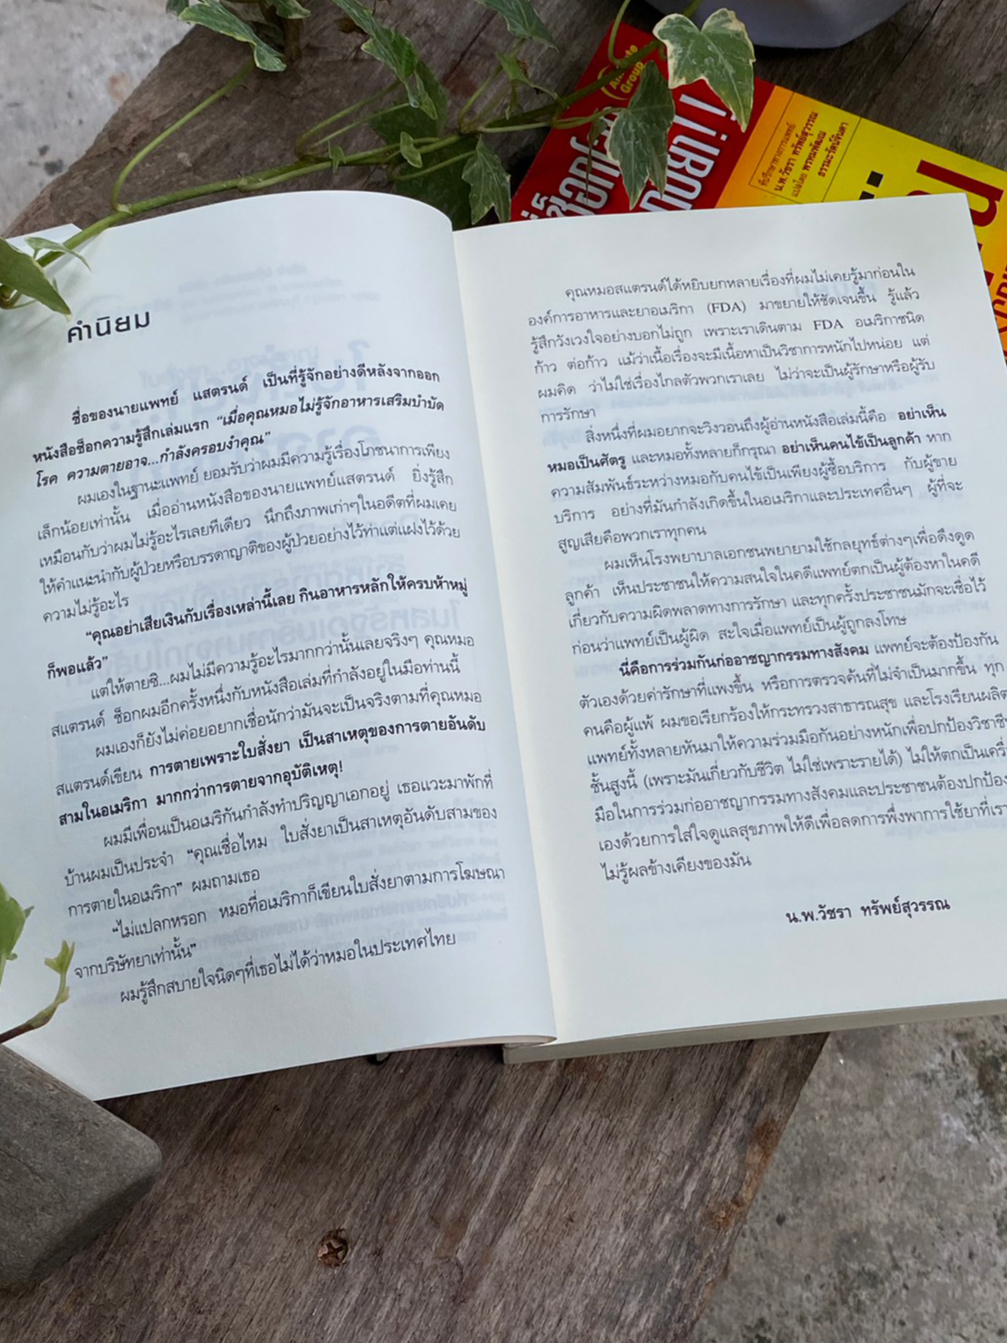 คำนิยม
ชื่อของนายแพทย์ แสตรนด์ เป็นที่รู้จักอย่างดีหลังจากออก
หนังสือช็อกความรู้สึกเล่มแรก “เมื่อคุณหมอไม่รู้จักอาหารเสริมบำบัด
โรค ความตายอาจ...กำลังครอบงำคุณ”
ผมเองในฐานะแพทย์ ยอมรับว่าผมมีความรู้เรื่องโภชนาการเพียง
เล็กน้อยเท่านั้น เมื่ออ่านหนังสือของนายแพทย์แสตรนด์ ยิ่งรู้สึก
เหมือนกับว่าผมไม่รู้อะไรเลยทีเดียว นึกถึงภาพเก่าๆในอดีตที่ผมเคย
ให้คำแนะนำกับผู้ป่วยหรือบรรดาญาติของผู้ป่วยอย่างไว้ท่าแต่แฝงไว้ด้วย
ความไม่รู้อะไร
“คุณอย่าเสียเงินกับเรื่องเหล่านี้เลย กินอาหารหลักให้ครบห้าหมู่
ก็พอแล้ว”
แต่ให้ตายซิ...ผมไม่มีความรู้อะไรมากกว่านั้นเลยจริงๆ คุณหมอ
สแตรนด์ ช็อกผมอีกครั้งหนึ่งกับหนังสือเล่มที่กำลังอยู่ในมือท่านนี้
ผมเองก็ยังไม่ค่อยอยากเชื่อนักว่ามันจะเป็นจริงตามที่คุณหมอ
สแตรนด์เขียน การตายเพราะใบสั่งยา เป็นสาเหตุของการตายอันดับ
สามในอเมริกา มากกว่าการตายจากอุบัติเหตุ!
ผมมีเพื่อนเป็นอเมริกันกำลังทำปริญญาเอกอยู่ เธอแวะมาพักที่
บ้านผมเป็นประจำ “คุณเชื่อไหม ใบสั่งยาเป็นสาเหตุอันดับสามของ
การตายในอเมริกา” ผมถามเธอ
“ไม่แปลกหรอก หมอที่อเมริกาก็เขียนใบสั่งยาตามการโฆษณา
จากบริษัทยาเท่านั้น”
ผมรู้สึกสบายใจนิดๆที่เธอไม่ได้ว่าหมอในประเทศไทย
คุณหมอสแตรนด์ได้หยิบยกหลายเรื่องที่ผมไม่เคยรู้มาก่อนใน
องค์การอาหารและยาอเมริกา (FDA) มาขยายให้ชัดเจนขึ้น รู้แล้ว
รู้สึกวังเวงใจอย่างบอกไม่ถูก เพราะเราเดินตาม FDA อเมริกาชนิด
ก้าว ต่อก้าว แม้ว่าเนื้อเรื่องจะมีเนื้อหาเป็นวิชาการหนักไปหน่อย แต่
ผมคิด ว่าไม่ใช่เรื่องไกลตัวพวกเราเลย ไม่ว่าจะเป็นผู้รักษาหรือผู้รับ
การรักษา
สิ่งหนึ่งที่ผมอยากจะวิงวอนถึงผู้อ่านหนังสือเล่มนี้คือ อย่าเห็น
หมอเป็นศัตรู และหมอทั้งหลายก็กรุณา อย่าเห็นคนไข้เป็นลูกค้า หาก
ความสัมพันธ์ระหว่างหมอกับคนไข้เป็นเพียงผู้ซื้อบริการ กับผู้ขาย
บริการ อย่างที่มันกำลังเกิดขึ้นในอเมริกาและประเทศอื่นๆ ผู้ที่จะ
สูญเสียคือพวกเราทุกคน
ผมเห็นโรงพยาบาลเอกชนพยายามใช้กลยุทธ์ต่างๆเพื่อดึงดูด
ลูกค้า เห็นประชาชนให้ความสนใจในคดีแพทย์ตกเป็นผู้ต้องหาในคดี
เกี่ยวกับความผิดพลาดทางการรักษา และทุกครั้งประชาชนมักจะเชื่อไว้
ก่อนว่าแพทย์เป็นผู้ผิด สะใจเมื่อแพทย์เป็นผู้ถูกลงโทษ
นี่คือการร่วมกันก่ออาชญากรรมทางสังคม แพทย์จะต้องป้องกัน
ตัวเองด้วยค่ารักษาที่แพงขึ้น หรือการตรวจค้นที่ไม่จำเป็นมากขึ้น ทุก
คนคือผู้แพ้ ผมขอเรียกร้องให้กระทรวงสาธารณสุข และโรงเรียนผลิต
แพทย์ทั้งหลายหันมาให้ความร่วมมือกันอย่างหนักเพื่อปกป้องวิชาชีพ
ชั้นสูงนี้ (เพราะมันเกี่ยวกับชีวิต ไม่ใช่เพราะรายได้) ไม่ให้ตกเป็นเครื่
มือในการร่วมก่ออาชญากรรมทางสังคมและประชาชนต้องปกป้อง
เองด้วยการใส่ใจดูแลสุขภาพให้ดีเพื่อลดการพึ่งพาการใช้ยาที่เรา
ไม่รู้ผลข้างเคียงของมัน
น.พ.วัชรา ทรัพย์สุวรรณ
Group
ที่ปรึกษาทางการแพทย์
น.พ.วัชรา ทรัพย์สุวรรณ
แปลโดย พรหมพัฒณ
ธรรมะรัตน์จินดา